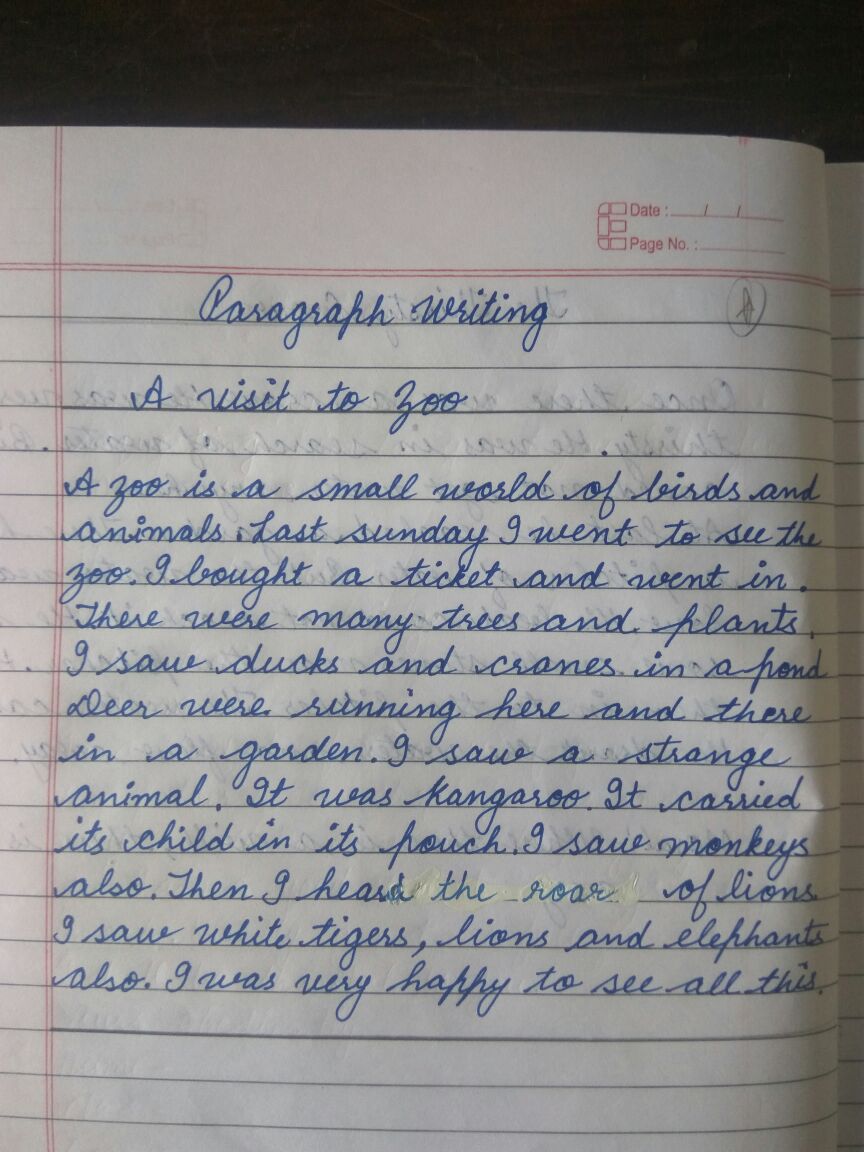 Date : / /
Page No. :
Paragraph Writing
A visit to Zoo
A zoo is a small world of birds and
animals. Last sunday I went to see the
zoo. I bought a ticket and went in.
There were many trees and plants.
I saw ducks and cranes in a pond
Deer were running here and there
in a garden. I saw a strange
animal. It was kangaroo. It carried
its child in its pouch. I saw monkeys
also. Then I heard the roar of lions.
I saw white tigers, lions and elephants
also. I was very happy to see all this.